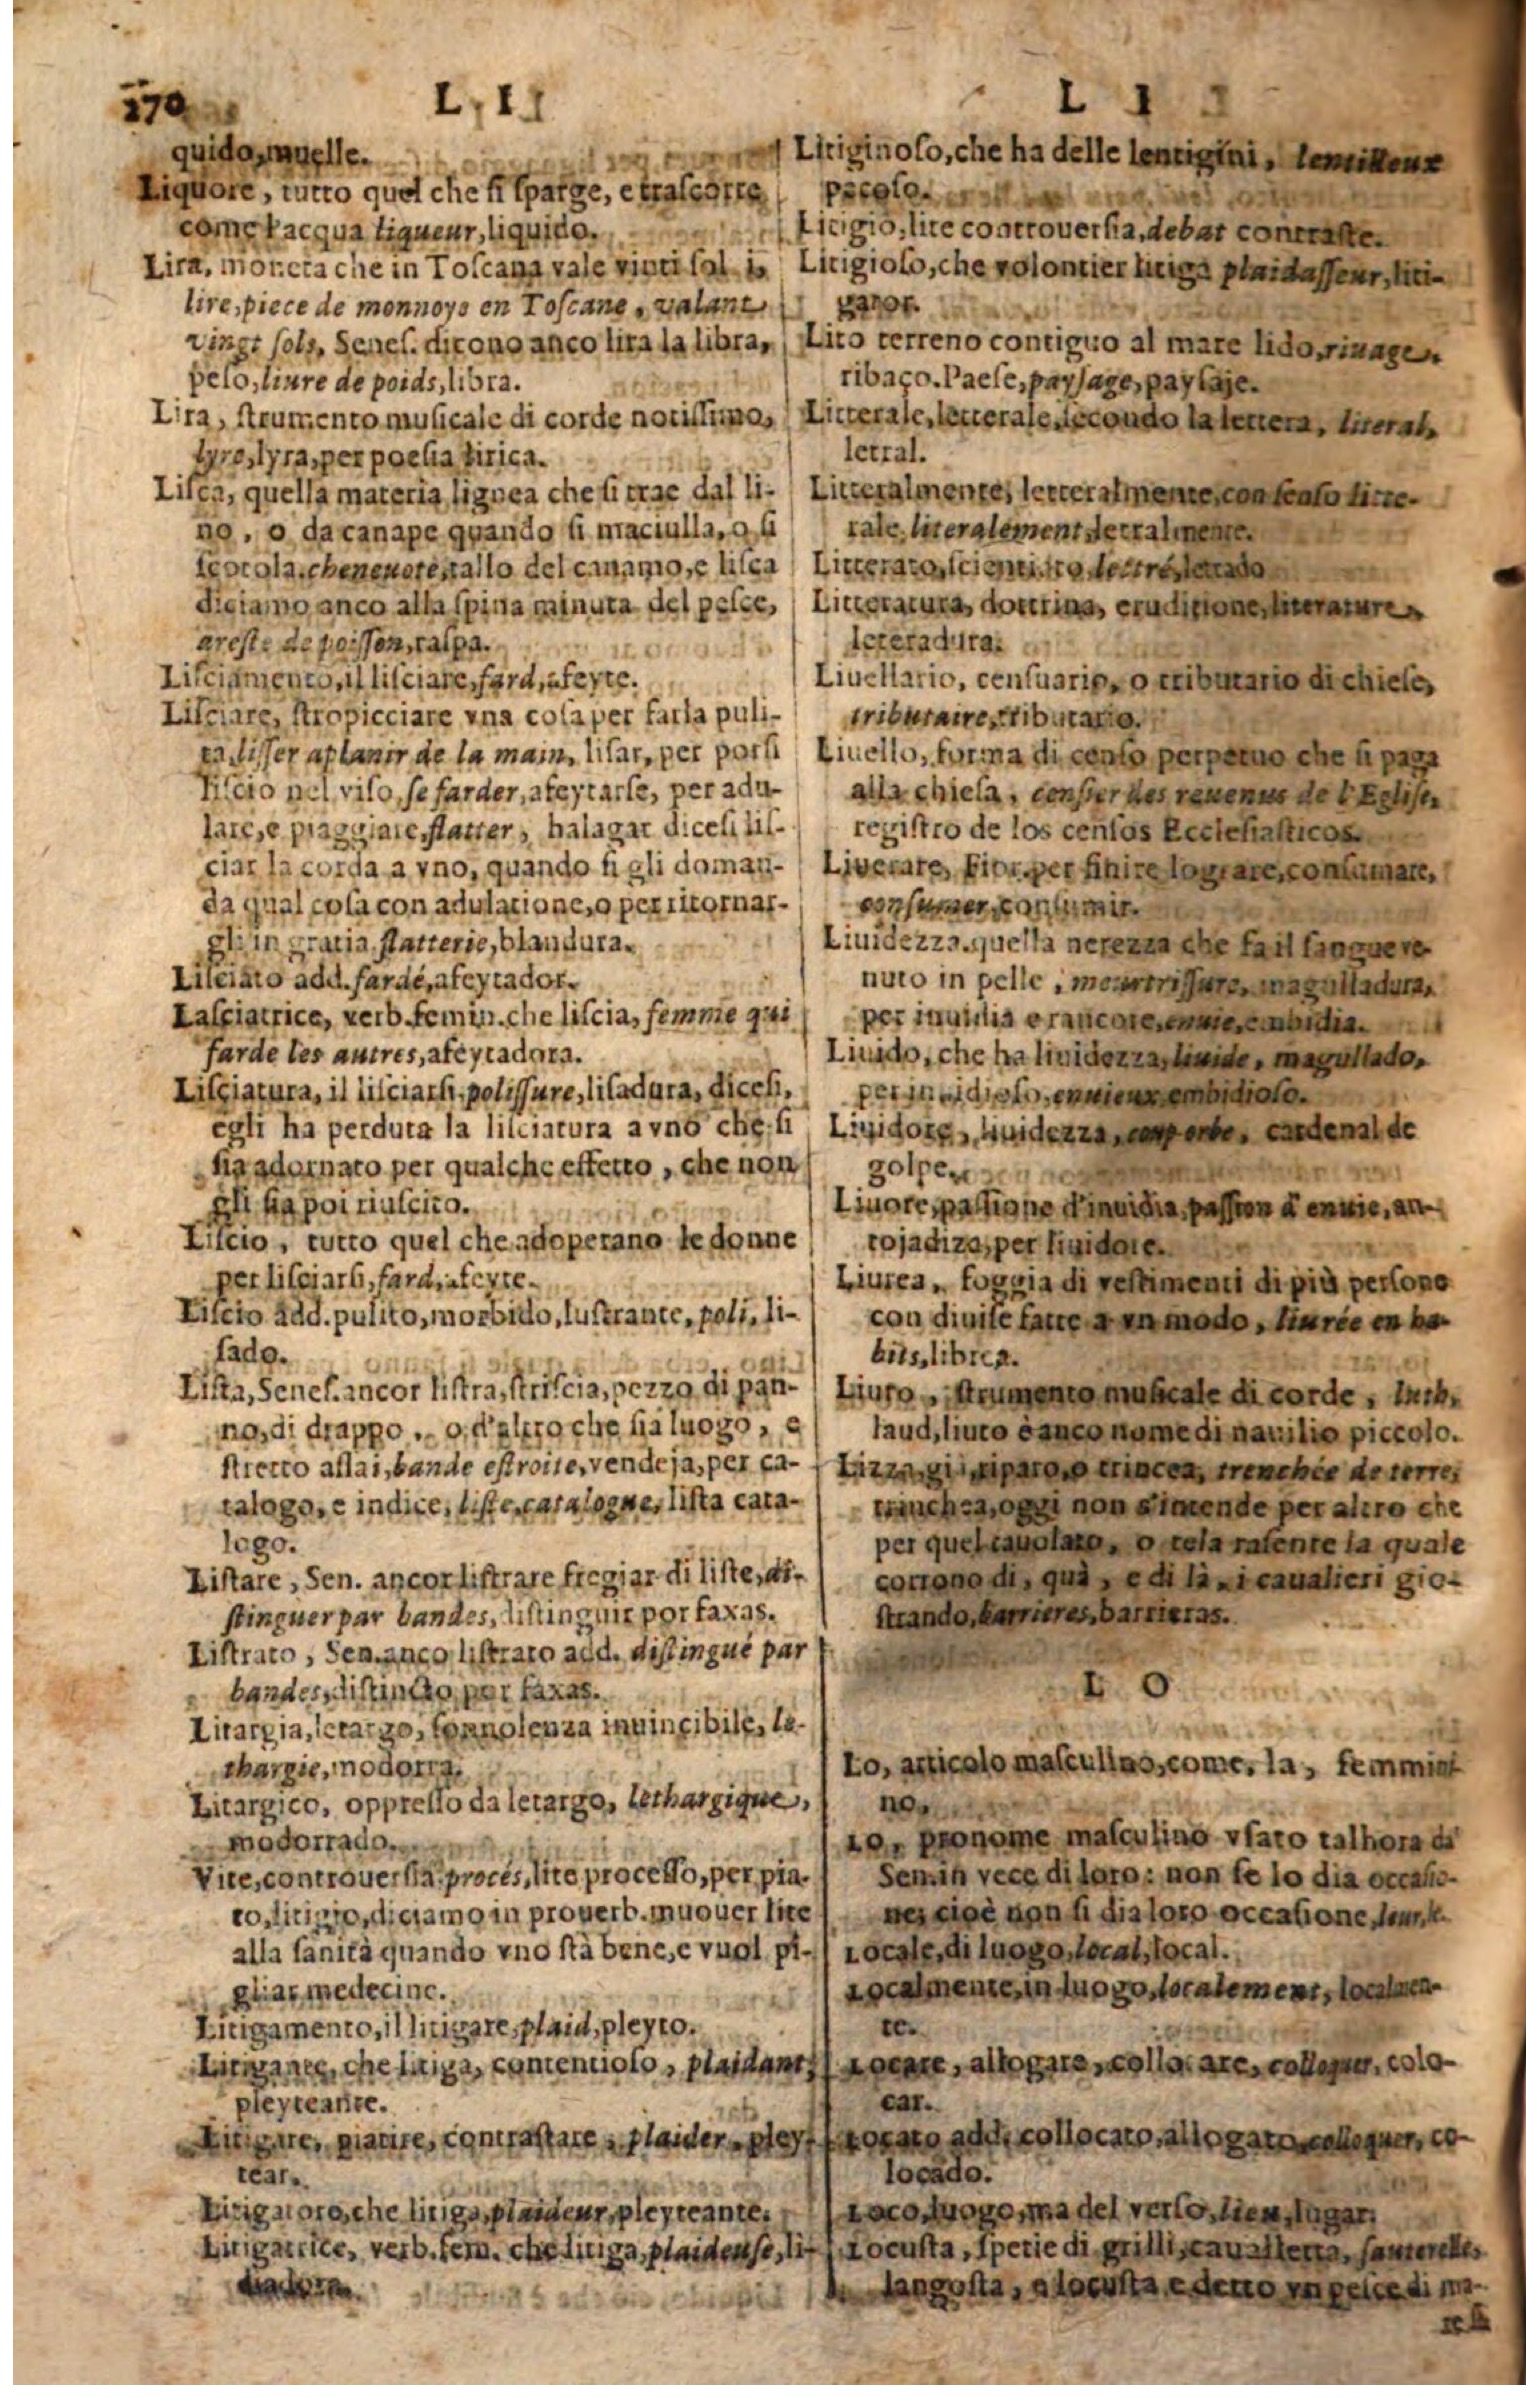 270 L I
quido, muelle.
Liquore, tutto quel che si sparge, e trascorre
come l'acqua liqueur, liquido.
Lira, moneta che in Toscana vale vinti sol i,
lire, piece de monnoye en Toscane, valant
vingt sols, Senes. dicono anco lira la libra,
peso, liure de poids, libra.
Lira, strumento musicale di corde notissimo,
lyre, lyra, per poesia lirica.
Lisca, quella materia lignea che si trae dal li-
no, o da canape quando si maciulla, o si
scotola. cheneuote, tallo del canamo, e lisca
diciamo anco alla spina minuta del pesce,
areste de poisson, raspa.
Lisciamento, il lisciare, fard, afeyte.
Lisciare, stropicciare vna cosa per farla puli-
ta, lisser aplanir de la main, lisar, per porsi
liscio nel viso, se farder, afeytarse, per adu-
lare, e piaggiare, flatter, halagar dicesi lis-
ciar la corda a vno, quando si gli doman-
da qual cosa con adulatione, o per ritornar-
gli in gratia. flatterie, blandura.
Lisciato add. fardé, afeytador.
Lasciatrice, verb. femin. che liscia, femme qui
farde les autres, afeytadora.
Lisciatura, il lisciarsi, polissure, lisadura, dicesi,
egli ha perduta la lisciatura a vno che si
sia adornato per qualche effetto, che non
gli sia poi riuscito.
Liscio, tutto quel che adoperano le donne
per lisciarsi, fard, afeyte.
Liscio add. pulito, morbido, lustrante, poli, li-
sado.
Lista, Senes. ancor listra, striscia, pezzo di pan-
no, di drappo, o d'altro che sia luogo, e
stretto assai, bande estroite, vendeja, per ca-
talogo, e indice, liste, catalogue, lista cata-
logo.
Listare, Sen. ancor listrare fregiar di liste, di-
stinguer par bandes, distinguir por faxas.
Listrato, Sen. anco listrato add. distingué par
bandes, distincto por faxas.
Litargia, letargo, sonnolenza inuincibile, le-
thargie, modorra.
Litargico, oppresso da letargo, lethargique,
modorrado.
Vite, controuersia procés, lite processo, per pia-
to, litigio, diciamo in prouerb. muouer lite
alla sanità quando vno stà bene, e vuol pi-
gliar medecine.
Litigamento, il litigare, plaid, pleyto.
Litigante, che litiga, contentioso, plaidant,
pleyteante.
Litigare, piatire, contrastare, plaider, pley-
tear.
Litigatore, che litiga, plaideur, pleyteante.
Litigatrice, verb. fem. che litiga, plaideuse, li-
diadora.
L I
Litiginoso, che ha delle lentigini, lentilleux
pecoso.
Litigio, lite controuersia, debat contraste.
Litigioso, che volontier litiga plaidasseur, liti-
gator.
Lito terreno contiguo al mare lido, riuage,
ribaço. Paese, paysage, paysaje.
Litterale, letterale, secondo la lettera, literal,
letral.
Litteralmente, letteralmente, con senso litte-
rale, literalement, letralmente.
Litterato, scientiato, lettré, letrado
Litteratura, dottrina, eruditione, literature,
leteradura.
Liuellario, censuario, o tributario di chiese,
tributaire, tributario.
Liuello, forma di censo perpetuo che si paga
alla chiesa, censier des reuenus de l'Eglise,
registro de los censos Ecclesiasticos.
Liverare, Fior. per finire lograre, consumare,
consumer, consumir.
Liuidezza. quella nerezza che fa il sangue ve-
nuto in pelle, meurtrissure, magulladura,
per inuidia e rancore, enuie, enbidia.
Liuido, che ha liuidezza, liuide, magullado,
per inuidioso, enuieux, embidioso.
Liuidore, liuidezza, coup orbe, cardenal de
golpe.
Liuore, passione d'inuidia, passion d'enuie, an-
tojadizo, per liuidore.
Liurea, foggia di vestimenti di più persone
con diuise fatte a vn modo, liurée en ha-
bits, librea.
Liuto, strumento musicale di corde, luth,
laud, liuto è anco nome di nauilio piccolo.
Lizza, gia, riparo, o trincea, trenchée de terre,
trinchea, oggi non s'intende per altro che
per quel tauolato, o tela rasente la quale
corrono di, quà, e di là, i caualieri gio-
strando, barrieres, barrieras.
L O
Lo, articolo masculino, come, la, femmini
no,
Lo, pronome masculino vsato talhora da
Sen. in vece di loro: non se lo dia occasio-
ne, cioè non si dia loro occasione, leur,
Locale, di luogo, local, local.
Localmente, in luogo, localement, localmen-
te.
Locare, allogare, collocare, colloquer, colo-
car.
Locato add. collocato, allogato, colloquer, co-
locado.
Loco, luogo, ma del verso, lieu, lugar.
Locusta, spetie di grilli, caualletta, sauterelle,
langosta, o locusta e detto vn pesce di ma-